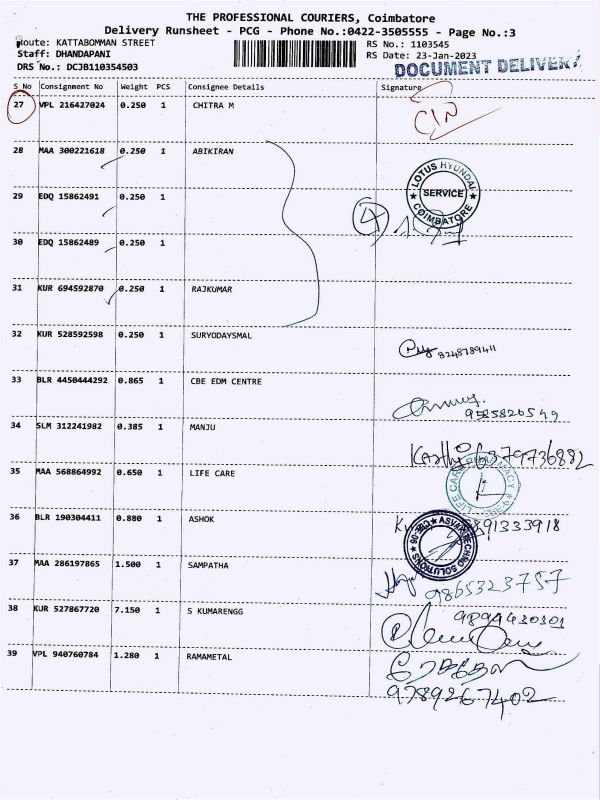 THE PROFESSIONAL COURIERS, Coimbatore
Delivery Runsheet - PCG - Phone No.:0422-3505555 - Page No.:3
Route: KATTABOMMAN STREET
RS No.: 1103545
Staff: DHANDAPANI
RS Date: 23-Jan-2023
DRS No.: DCJB110354503
DOCUMENT DELIVERY
S No Consignment No Weight PCS Consignee Details Signature
27 VPL 216427024 0.250 1 CHITRA M
CIN
28 MAA 300221618 0.250 1 ABIKIRAN
LOTUS HYUNDAI
29 EDQ 15862491 0.250 1
★ SERVICE ★
COIMBATORE
4
30 EDQ 15862489 0.250 1
31 KUR 694592870 0.250 1 RAJKUMAR
32 KUR 528592598 0.250 1 SURYODAYSMAL
8248789411
33 BLR 4450444292 0.865 1 CBE EDM CENTRE
9585826549
34 SLM 312241982 0.385 1 MANJU
6379736882
35 MAA 568864992 0.650 1 LIFE CARE
36 BLR 190304411 0.880 1 ASHOK
37 MAA 286197865 1.500 1 SAMPATHA
9865323757
38 KUR 527867720 7.150 1 S KUMARENGG
9894430301
39 VPL 940760784 1.280 1 RAMAMETAL
9789267402